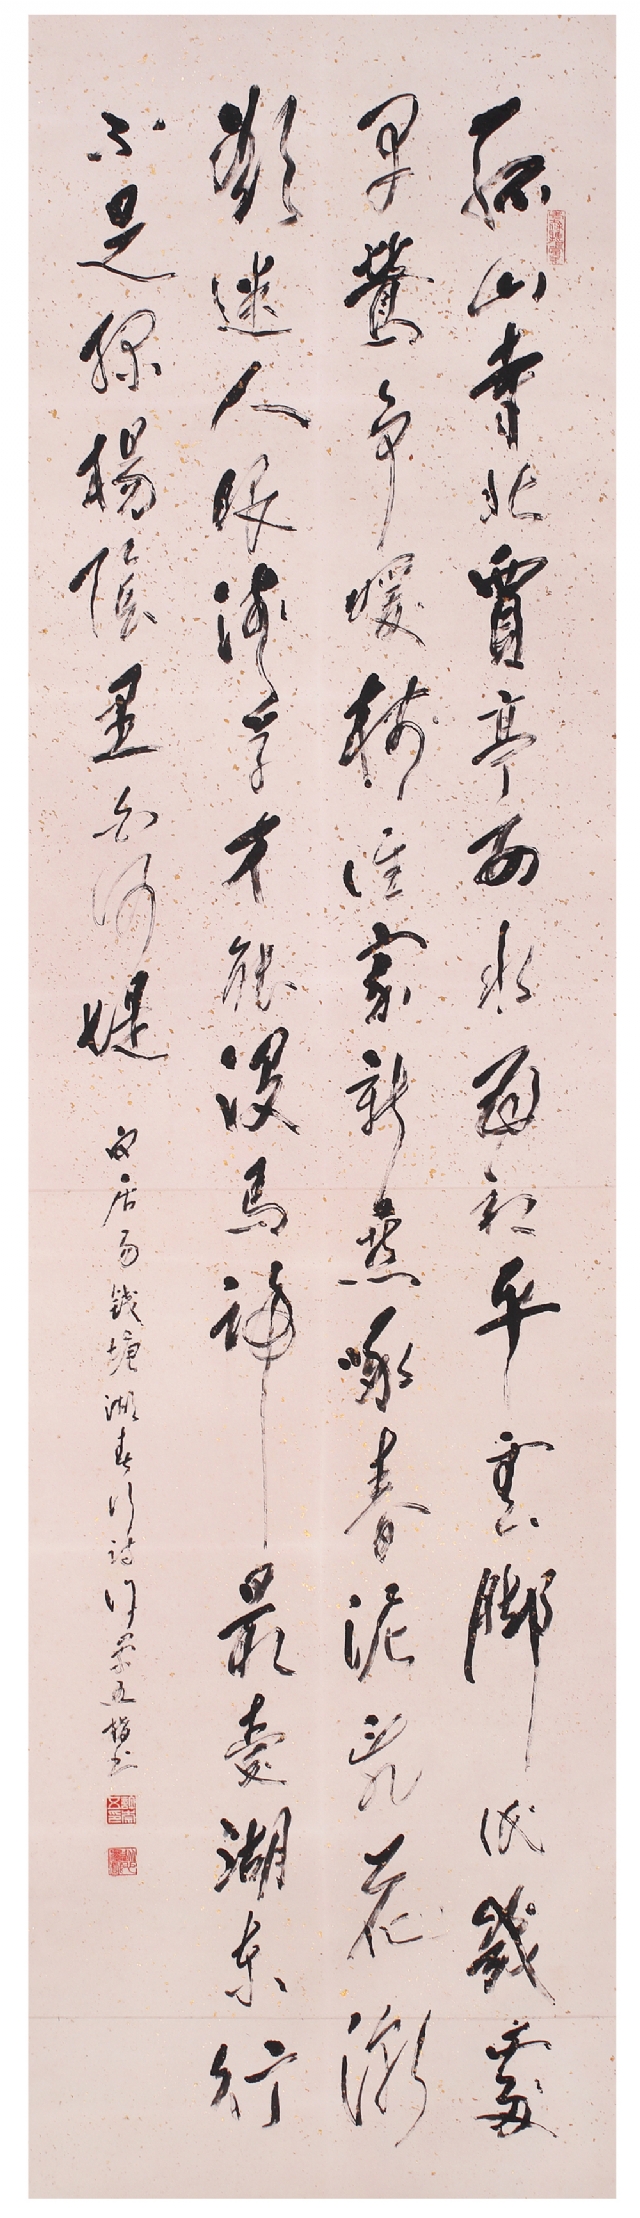 孤山寺北賈亭西水面初平雲脚低幾處
早鶯爭暖樹誰家新燕啄春泥亂花漸
欲迷人眼淺草才能沒馬蹄最愛湖東行
不足綠楊陰里白沙堤
白居易錢塘湖春行詩